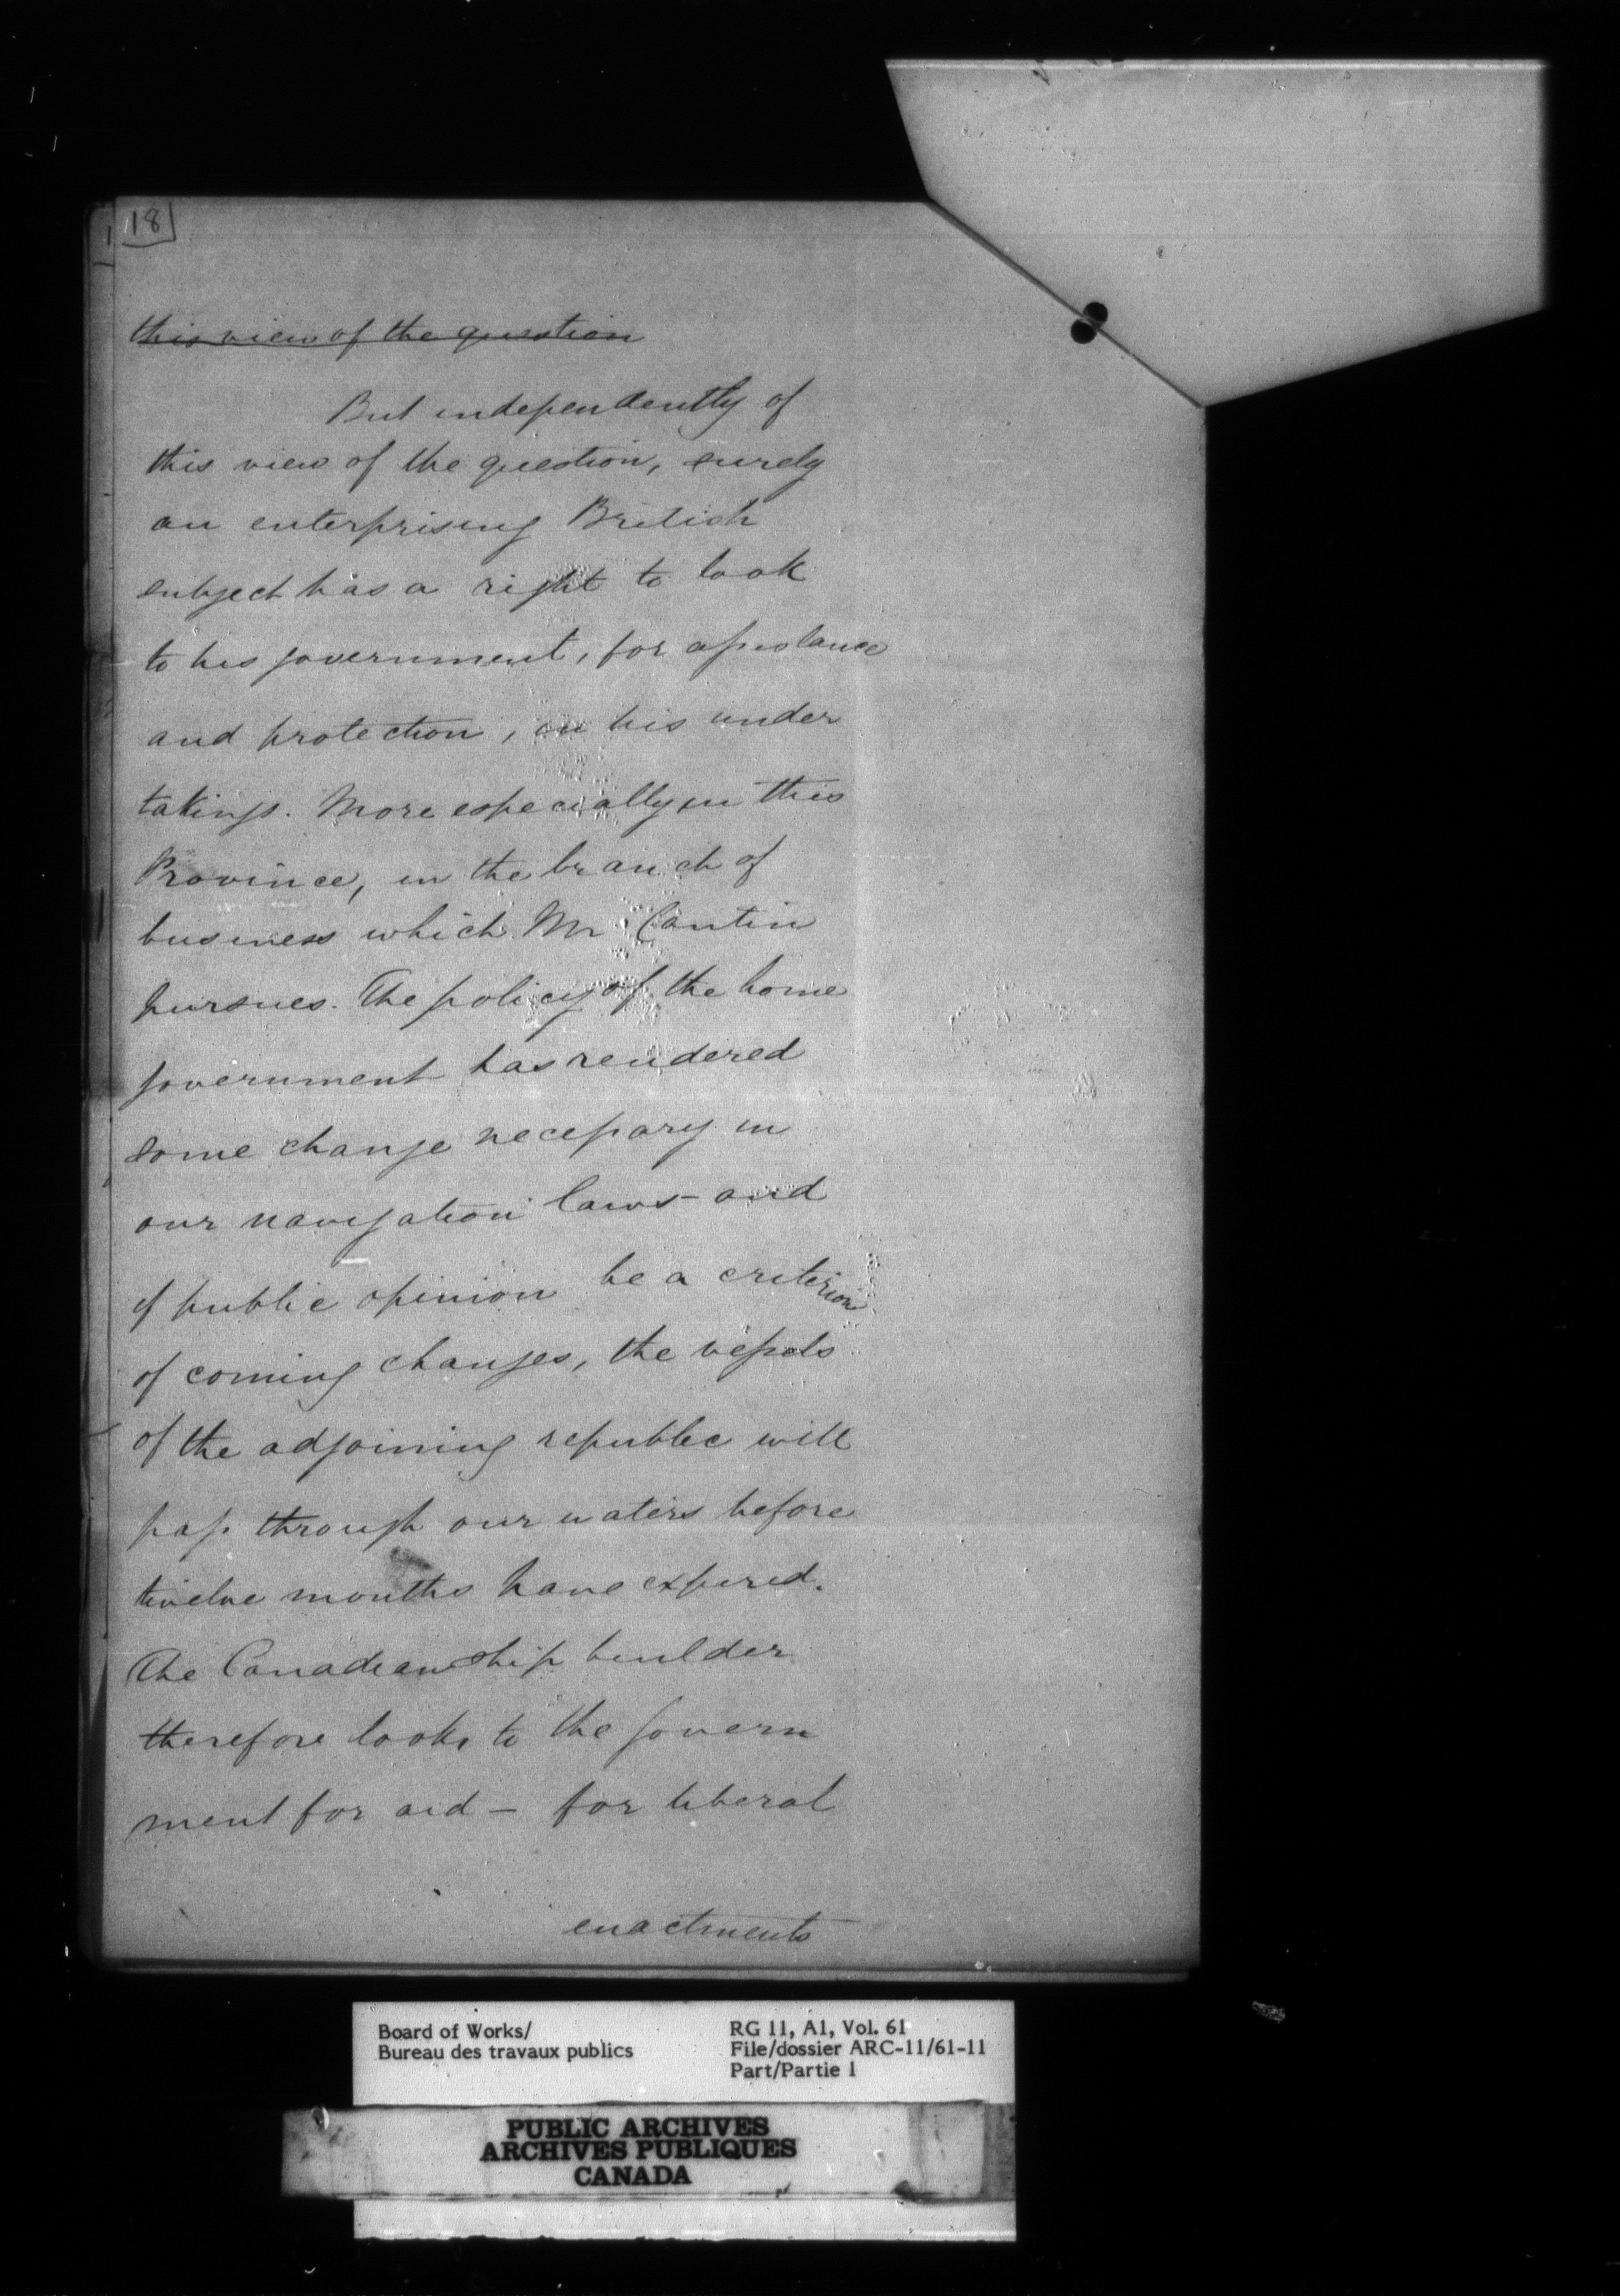 18
this view of the question
But independently of
this view of the question, surely
an enterprising British
subject has a right to look
to his government, for assistance
and protection, in his under
takings. More especially in this
Province, in the branch of
business which Mr Cantin
pursues. The policy of the home
government has rendered
some change necessary in
our navigation laws - and
if public opinion be a criterion
of coming changes, the vessels
of the adjoining republic will
pass through our waters before
twelve months have expired.
The Canadian ship builder
therefore looks to the govern
ment for aid - for liberal
enactments
Board of Works/
Bureau des travaux publics
RG 11, A1, Vol. 61
File/dossier ARC-11/61-11
Part/Partie 1
PUBLIC ARCHIVES
ARCHIVES PUBLIQUES
CANADA